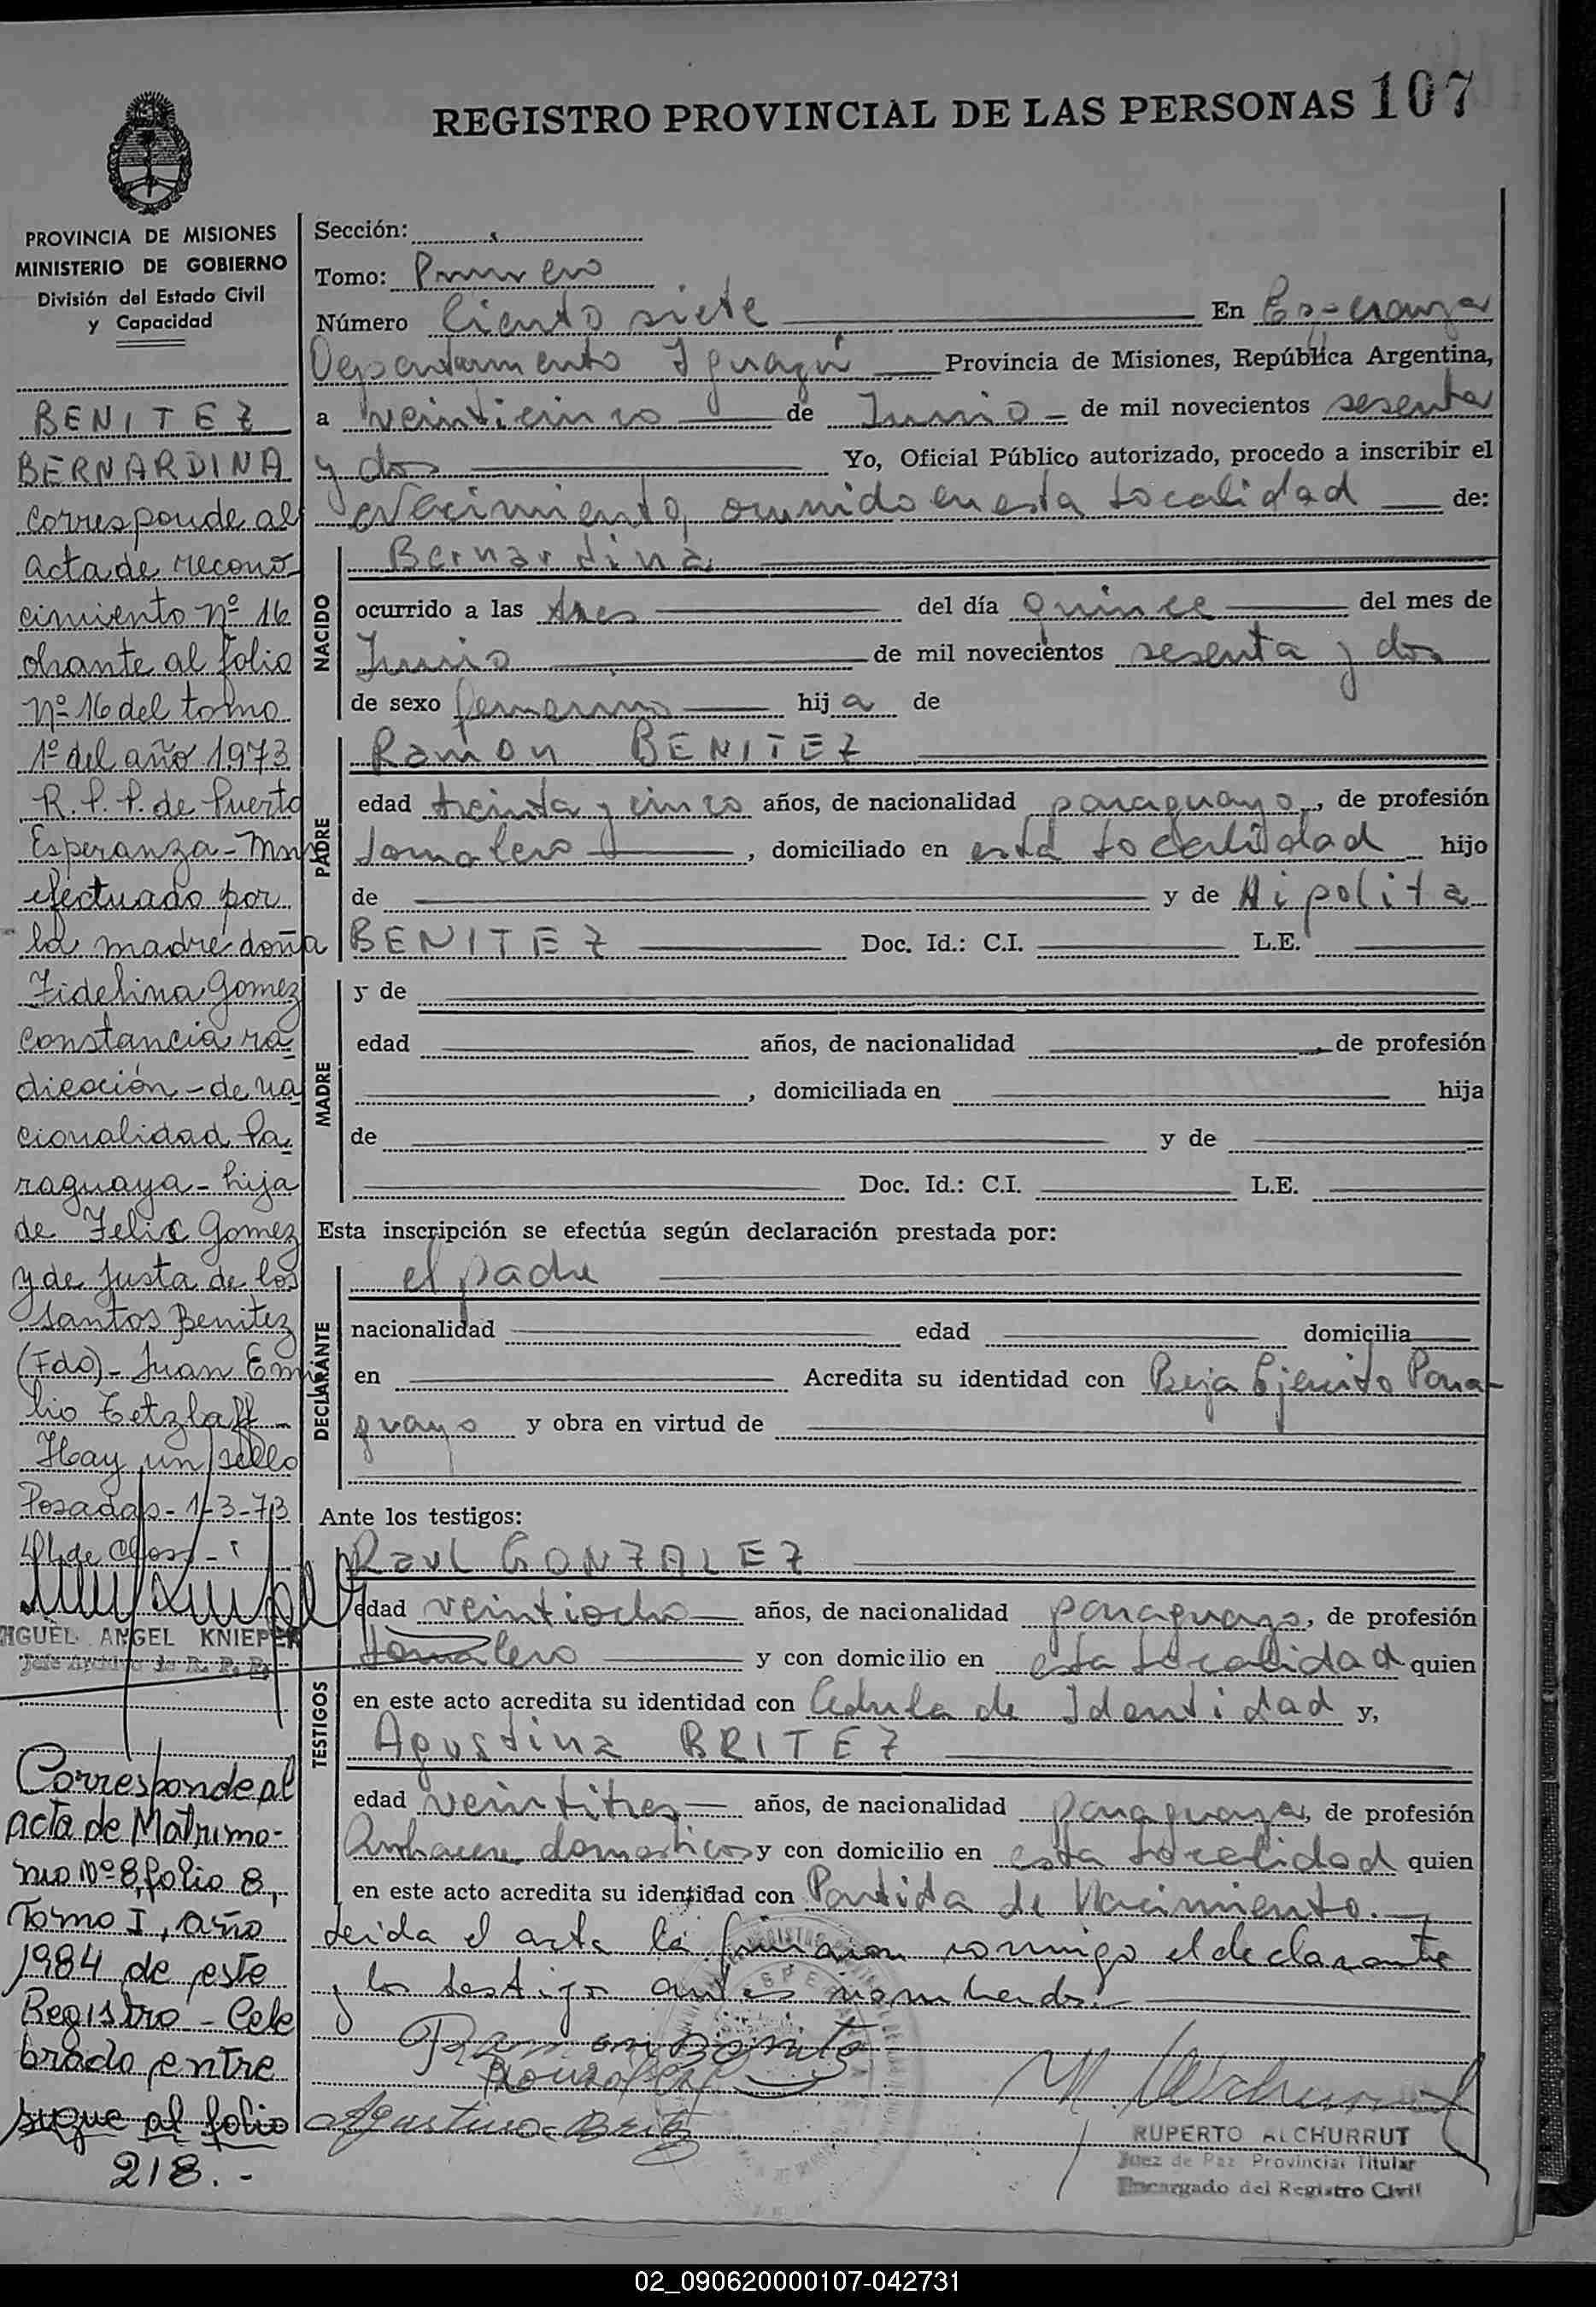 REGISTRO PROVINCIAL DE LAS PERSONAS 107
PROVINCIA DE MISIONES
MINISTERIO DE GOBIERNO
División del Estado Civil
y Capacidad
BENITEZ
BERNARDINA
Corresponde al
acta de recono
cimiento nº 16
obrante al folio
nº 16 del tomo
1º del año 1973
R. P. P. de Puerto
Esperanza - Mnes
efectuado por
la madre doña
Fidelina Gomez
constancia ra
dicación - de na
cionalidad Pa
raguaya - hija
de Felix Gomez
y de Justa de los
Santos Benitez
(Fdo) - Juan Emi
lio Tetzlaff -
Hay un sello
Posadas - 1-3-73
MIGUEL ANGEL KNIEPER
Jefe Archivo de R. P. P.
Corresponde al
acta de Matrimo-
nio Nº 8, folio 8,
Tomo I, año
1984 de este
Registro - Cele
brado entre
sigue al folio
218.-
Sección:
Tomo: Primero
Número Ciento siete En Esperanza
Departamento Iguazú Provincia de Misiones, República Argentina,
a veinticinco de Junio de mil novecientos sesenta
y dos Yo, Oficial Público autorizado, procedo a inscribir el
Nacimiento, ocurrido en esta localidad de:
NACIDO
Bernardina
ocurrido a las tres del día quince del mes de
Junio de mil novecientos sesenta y dos
de sexo femenino hija de
PADRE
Ramon BENITEZ
edad treinta y cinco años, de nacionalidad paraguayo, de profesión
Jornalero, domiciliado en esta localidad hijo
de y de Hipolita
BENITEZ Doc. Id.: C.I. L.E.
MADRE
y de
edad años, de nacionalidad , de profesión
, domiciliada en hija
de y de
Doc. Id.: C.I. L.E.
Esta inscripción se efectúa según declaración prestada por:
DECLARANTE
el padre
nacionalidad edad domicilia
en Acredita su identidad con Baja Ejercito Para-
guayo y obra en virtud de
Ante los testigos:
TESTIGOS
Raul GONZALEZ
edad veintiocho años, de nacionalidad paraguayo, de profesión
Jornalero y con domicilio en esta localidad quien
en este acto acredita su identidad con Cedula de Identidad y,
Agustina BRITEZ
edad veintitres años, de nacionalidad paraguaya, de profesión
Quehaceres domesticos y con domicilio en esta localidad quien
en este acto acredita su identidad con Partida de Nacimiento.
Leida el acta la firmaron conmigo el declarante
y los testigos antes nombrados.
Ramon Benitez
Agustina Britez
RUPERTO ALCHURRUT
Juez de Paz Provincial Titular
Encargado del Registro Civil
02_090620000107-042731